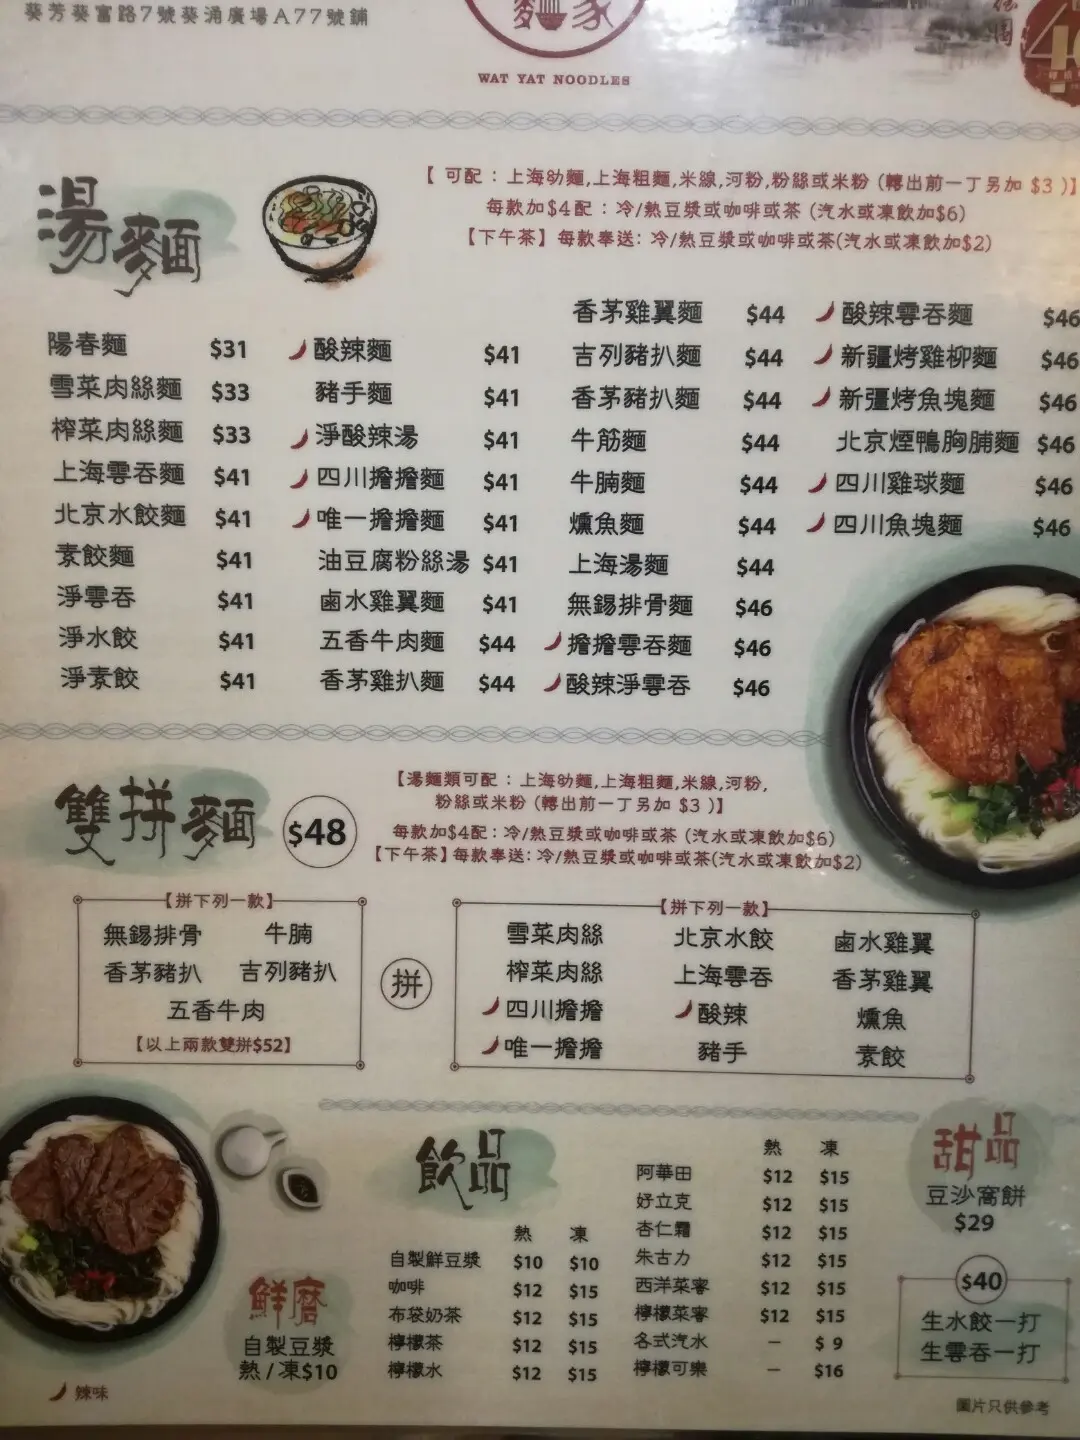 葵芳葵富路7號葵涌廣場A77號鋪
麵家
WAT YAT NOODLES
湯麵
【 可配：上海幼麵,上海粗麵,米線,河粉,粉絲或米粉 (轉出前一丁另加 $3 )】
每款加$4配：冷/熱豆漿或咖啡或茶 (汽水或凍飲加$6)
【下午茶】每款奉送：冷/熱豆漿或咖啡或茶(汽水或凍飲加$2)
陽春麵 $31
雪菜肉絲麵 $33
榨菜肉絲麵 $33
上海雲吞麵 $41
北京水餃麵 $41
素餃麵 $41
淨雲吞 $41
淨水餃 $41
淨素餃 $41
酸辣麵 $41
豬手麵 $41
淨酸辣湯 $41
四川擔擔麵 $41
唯一擔擔麵 $41
油豆腐粉絲湯 $41
鹵水雞翼麵 $41
五香牛肉麵 $44
香茅雞扒麵 $44
香茅雞翼麵 $44
吉列豬扒麵 $44
香茅豬扒麵 $44
牛筋麵 $44
牛腩麵 $44
燻魚麵 $44
上海湯麵 $44
無錫排骨麵 $46
擔擔雲吞麵 $46
酸辣淨雲吞 $46
酸辣雲吞麵 $46
新疆烤雞柳麵 $46
新疆烤魚塊麵 $46
北京煙鴨胸脯麵 $46
四川雞球麵 $46
四川魚塊麵 $46
雙拼麵 $48
【湯麵類可配：上海幼麵,上海粗麵,米線,河粉,
粉絲或米粉 (轉出前一丁另加 $3 )】
每款加$4配：冷/熱豆漿或咖啡或茶 (汽水或凍飲加$6)
【下午茶】每款奉送：冷/熱豆漿或咖啡或茶(汽水或凍飲加$2)
【拼下列一款】
無錫排骨 牛腩
香茅豬扒 吉列豬扒
五香牛肉
【以上兩款雙拼$52】
拼
【拼下列一款】
雪菜肉絲 北京水餃 鹵水雞翼
榨菜肉絲 上海雲吞 香茅雞翼
四川擔擔 酸辣 燻魚
唯一擔擔 豬手 素餃
鮮磨
自製豆漿
熱 / 凍$10
辣味
飲品
熱 凍
自製鮮豆漿 $10 $10
咖啡 $12 $15
布袋奶茶 $12 $15
檸檬茶 $12 $15
檸檬水 $12 $15
熱 凍
阿華田 $12 $15
好立克 $12 $15
杏仁霜 $12 $15
朱古力 $12 $15
西洋菜蜜 $12 $15
檸檬菜蜜 $12 $15
各式汽水 － $ 9
檸檬可樂 － $16
甜品
豆沙窩餅
$29
$40
生水餃一打
生雲吞一打
圖片只供參考